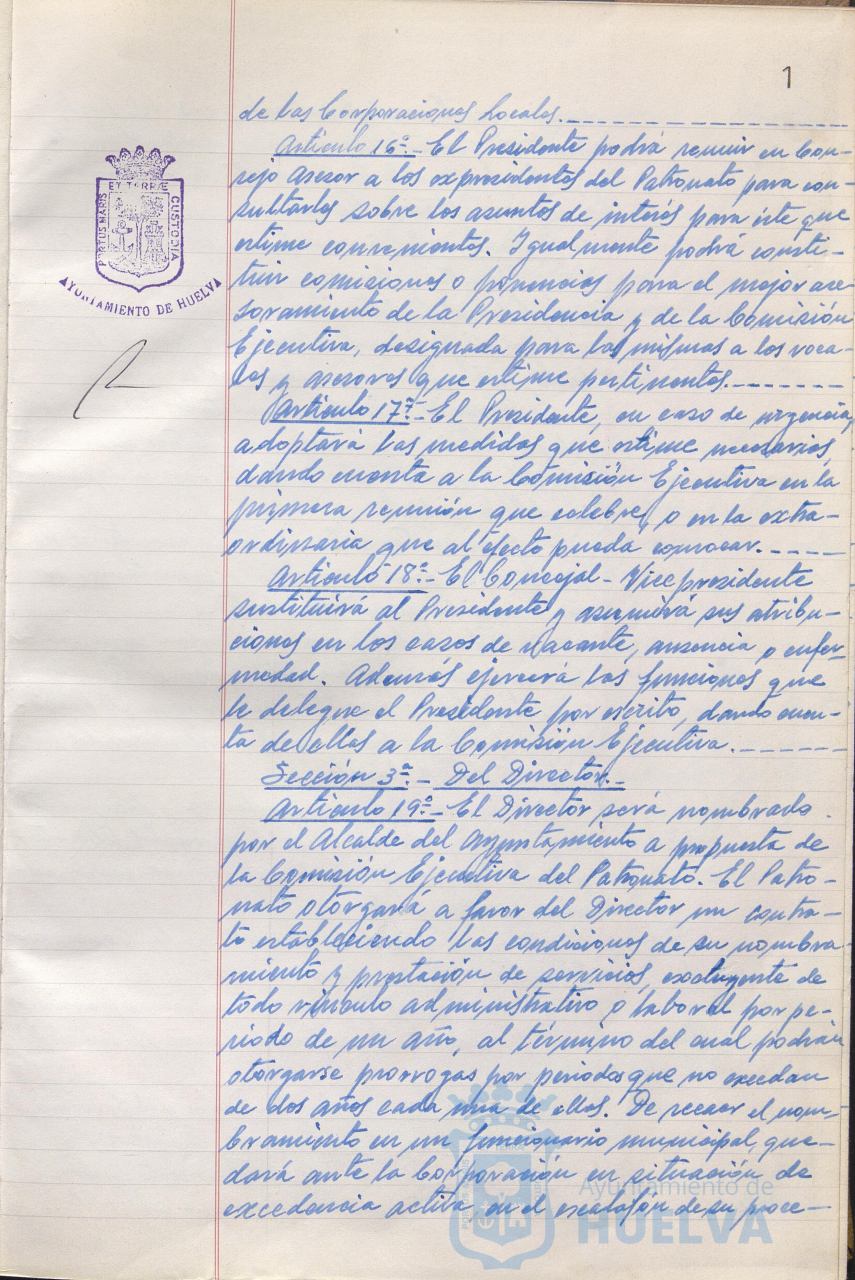 1
de las Corporaciones Locales.
Artículo 16º.- El Presidente podrá reunir en Con-
sejo Asesor a los expresidentes del Patronato para con-
sultarles sobre los asuntos de interés para éste que
estime convenientes. Igualmente podrá consti-
tuir comisiones o ponencias para el mejor ase-
soramiento de la Presidencia y de la Comisión
Ejecutiva, designada para las mismas a los voca-
les y asesores que estime pertinentes.
Artículo 17º.- El Presidente, en caso de urgencia,
adoptará las medidas que estime necesarias,
dando cuenta a la Comisión Ejecutiva en la
primera reunión que celebre, o en la extra-
ordinaria que al efecto pueda convocar.
Artículo 18º.- El Concejal-Vicepresidente
sustituirá al Presidente y asumirá sus atribu-
ciones en los casos de vacante, ausencia o enfer-
medad. Además ejercerá las funciones que
le delegue el Presidente por escrito, dando cuen-
ta de ellas a la Comisión Ejecutiva.
Sección 3ª.- Del Director.-
Artículo 19º.- El Director será nombrado
por el Alcalde del Ayuntamiento a propuesta de
la Comisión Ejecutiva del Patronato. El Patro-
nato otorgará a favor del Director un contra-
to estableciendo las condiciones de su nombra-
miento y prestación de servicios, excluyente de
todo vínculo administrativo o laboral por pe-
riodo de un año, al término del cual podrán
otorgarse prorrogas por periodos que no excedan
de dos años cada una de ellas. De recaer el nom-
bramiento en un funcionario municipal, que-
dará ante la Corporación en situación de
excedencia activa en el escalafón de su proce-
PORTUS MARIS ET TERRÆ CUSTODIA
AYUNTAMIENTO DE HUELVA
Ayuntamiento de
HUELVA